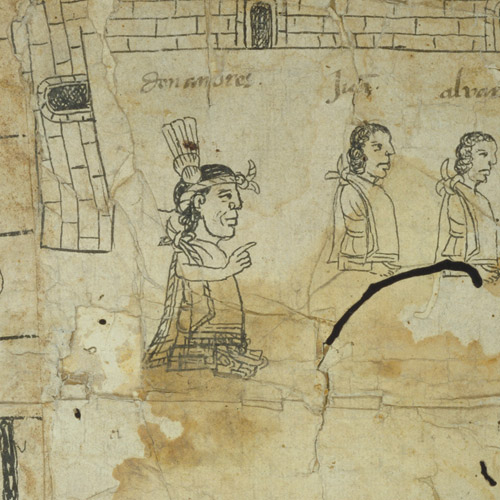 don andres. Juº. alvar